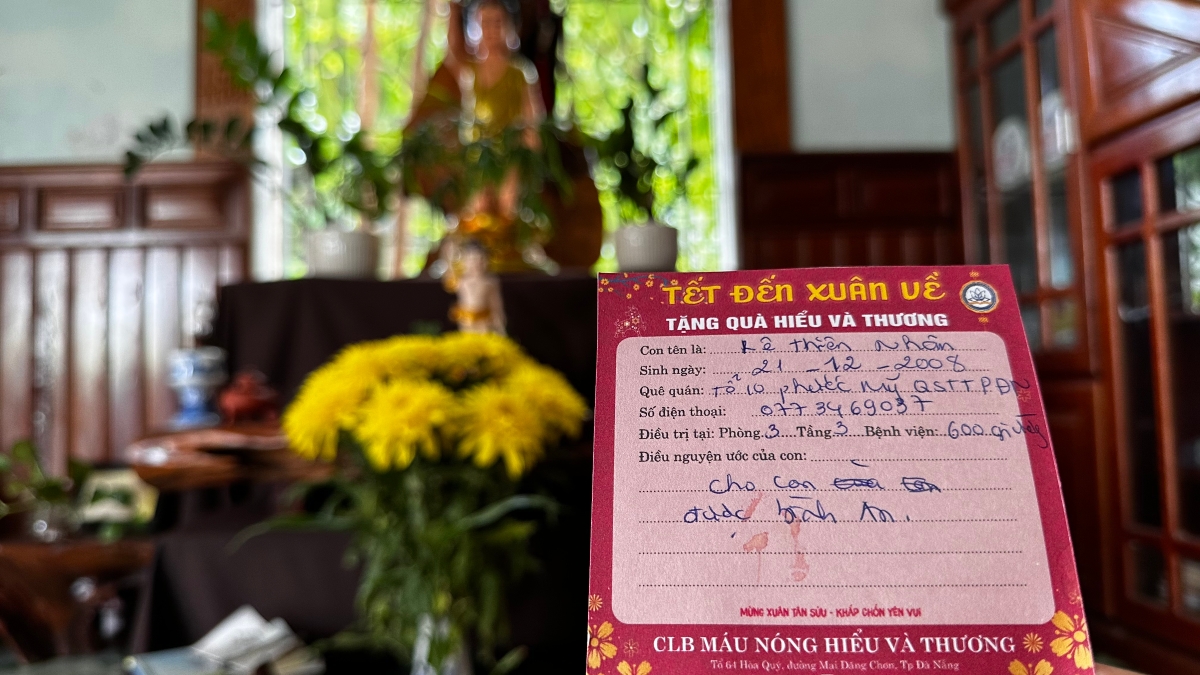 TẾT ĐẾN XUÂN VỀ
TẶNG QUÀ HIỂU VÀ THƯƠNG
Con tên là: Lê Thiên Nhân
Sinh ngày: 21 - 12 - 2008
Quê quán: Tổ 10 phước Mỹ QSTTPĐN
Số điện thoại: 0773469037
Điều trị tại: Phòng 3 Tầng 3 Bệnh viện: 600 gi
Điều nguyện ước của con:
cho con
được bình An.
MỪNG XUÂN TÂN SỬU - KHẮP CHỐN YÊN VUI
CLB MÁU NÓNG HIỂU VÀ THƯƠNG
Tổ 64 Hòa Quý, đường Mai Đăng Chơn, Tp Đà Nẵng